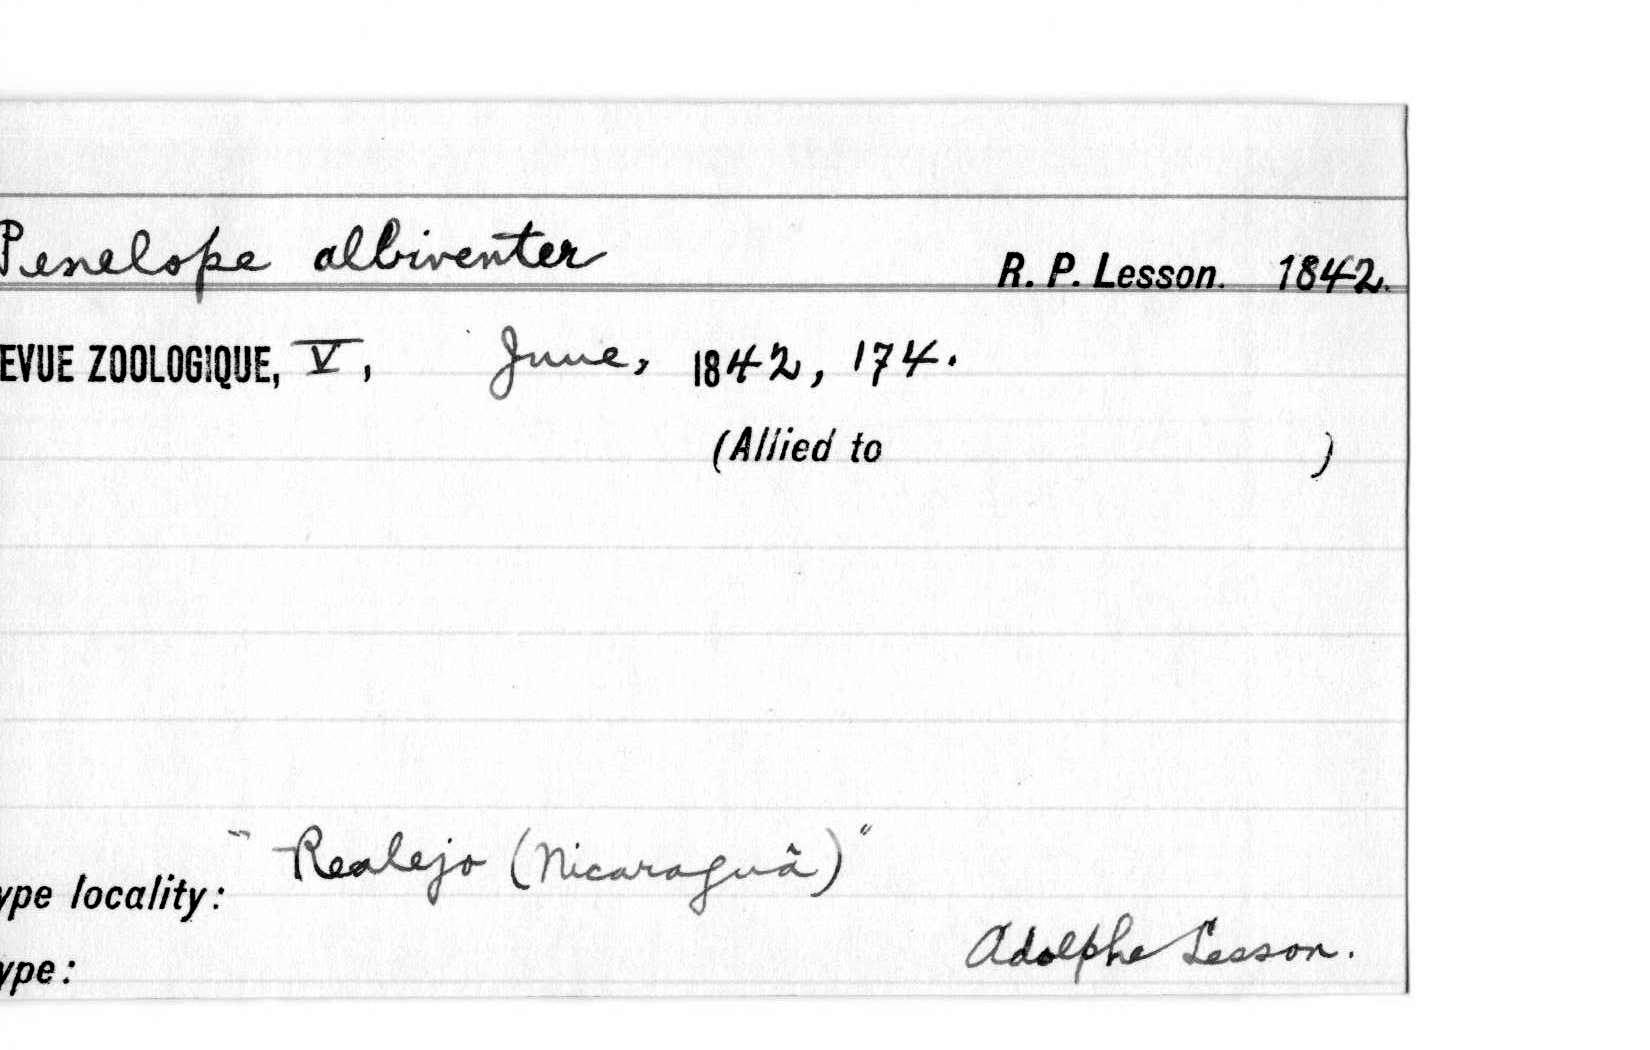 Penelope albiventer R. P. Lesson. 1842.
EVUE ZOOLOGIQUE, V, June, 1842, 174.
(Allied to )
" Realejo (Nicaraguâ) "
ype locality:
Adolphe Lesson.
ype: